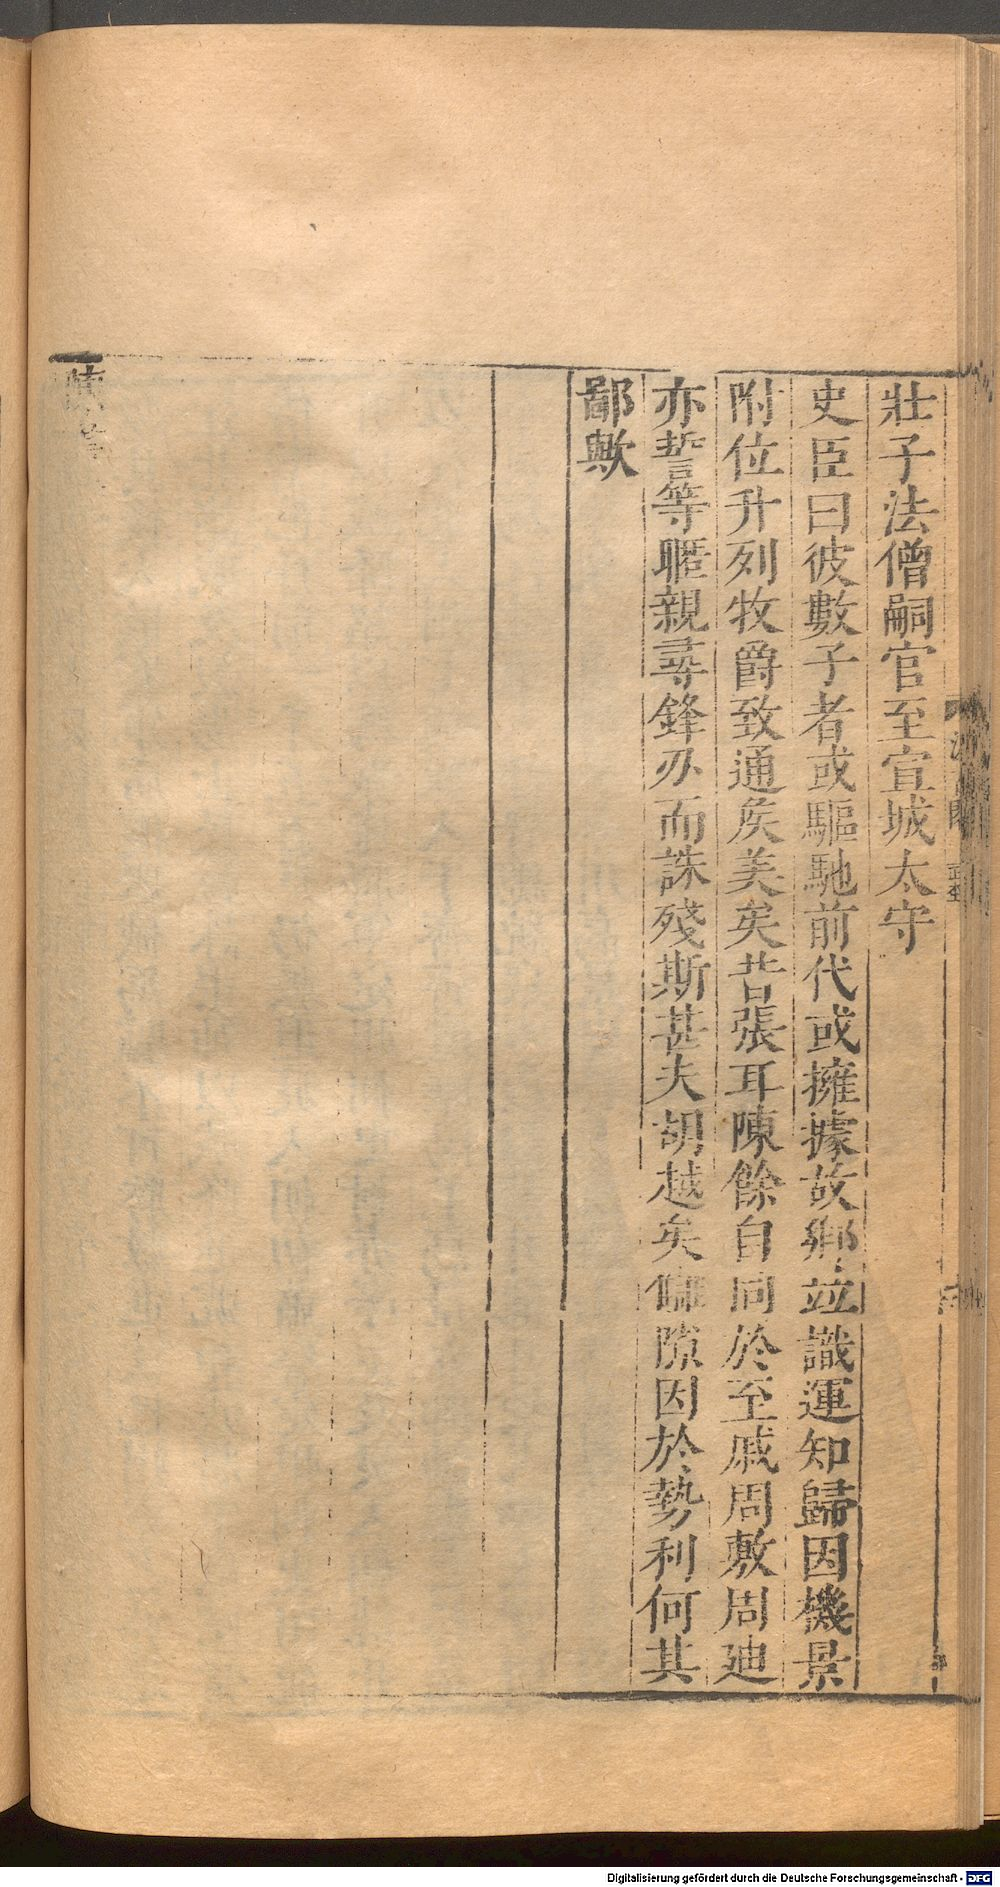 壯子法僧嗣官至宣城太守
史臣曰彼數子者或驅馳前代或擁據故鄉竝識運知歸因機景
附位升列牧爵致通矦美矣昔張耳陳餘自同於至戚周敷周迪
亦誓等暱親尋鋒刃而誅殘斯甚夫胡越矣傳隙因於勢利何其
鄙歟
陳書
Digitalisierung gefördert durch die Deutsche Forschungsgemeinschaft - DFG